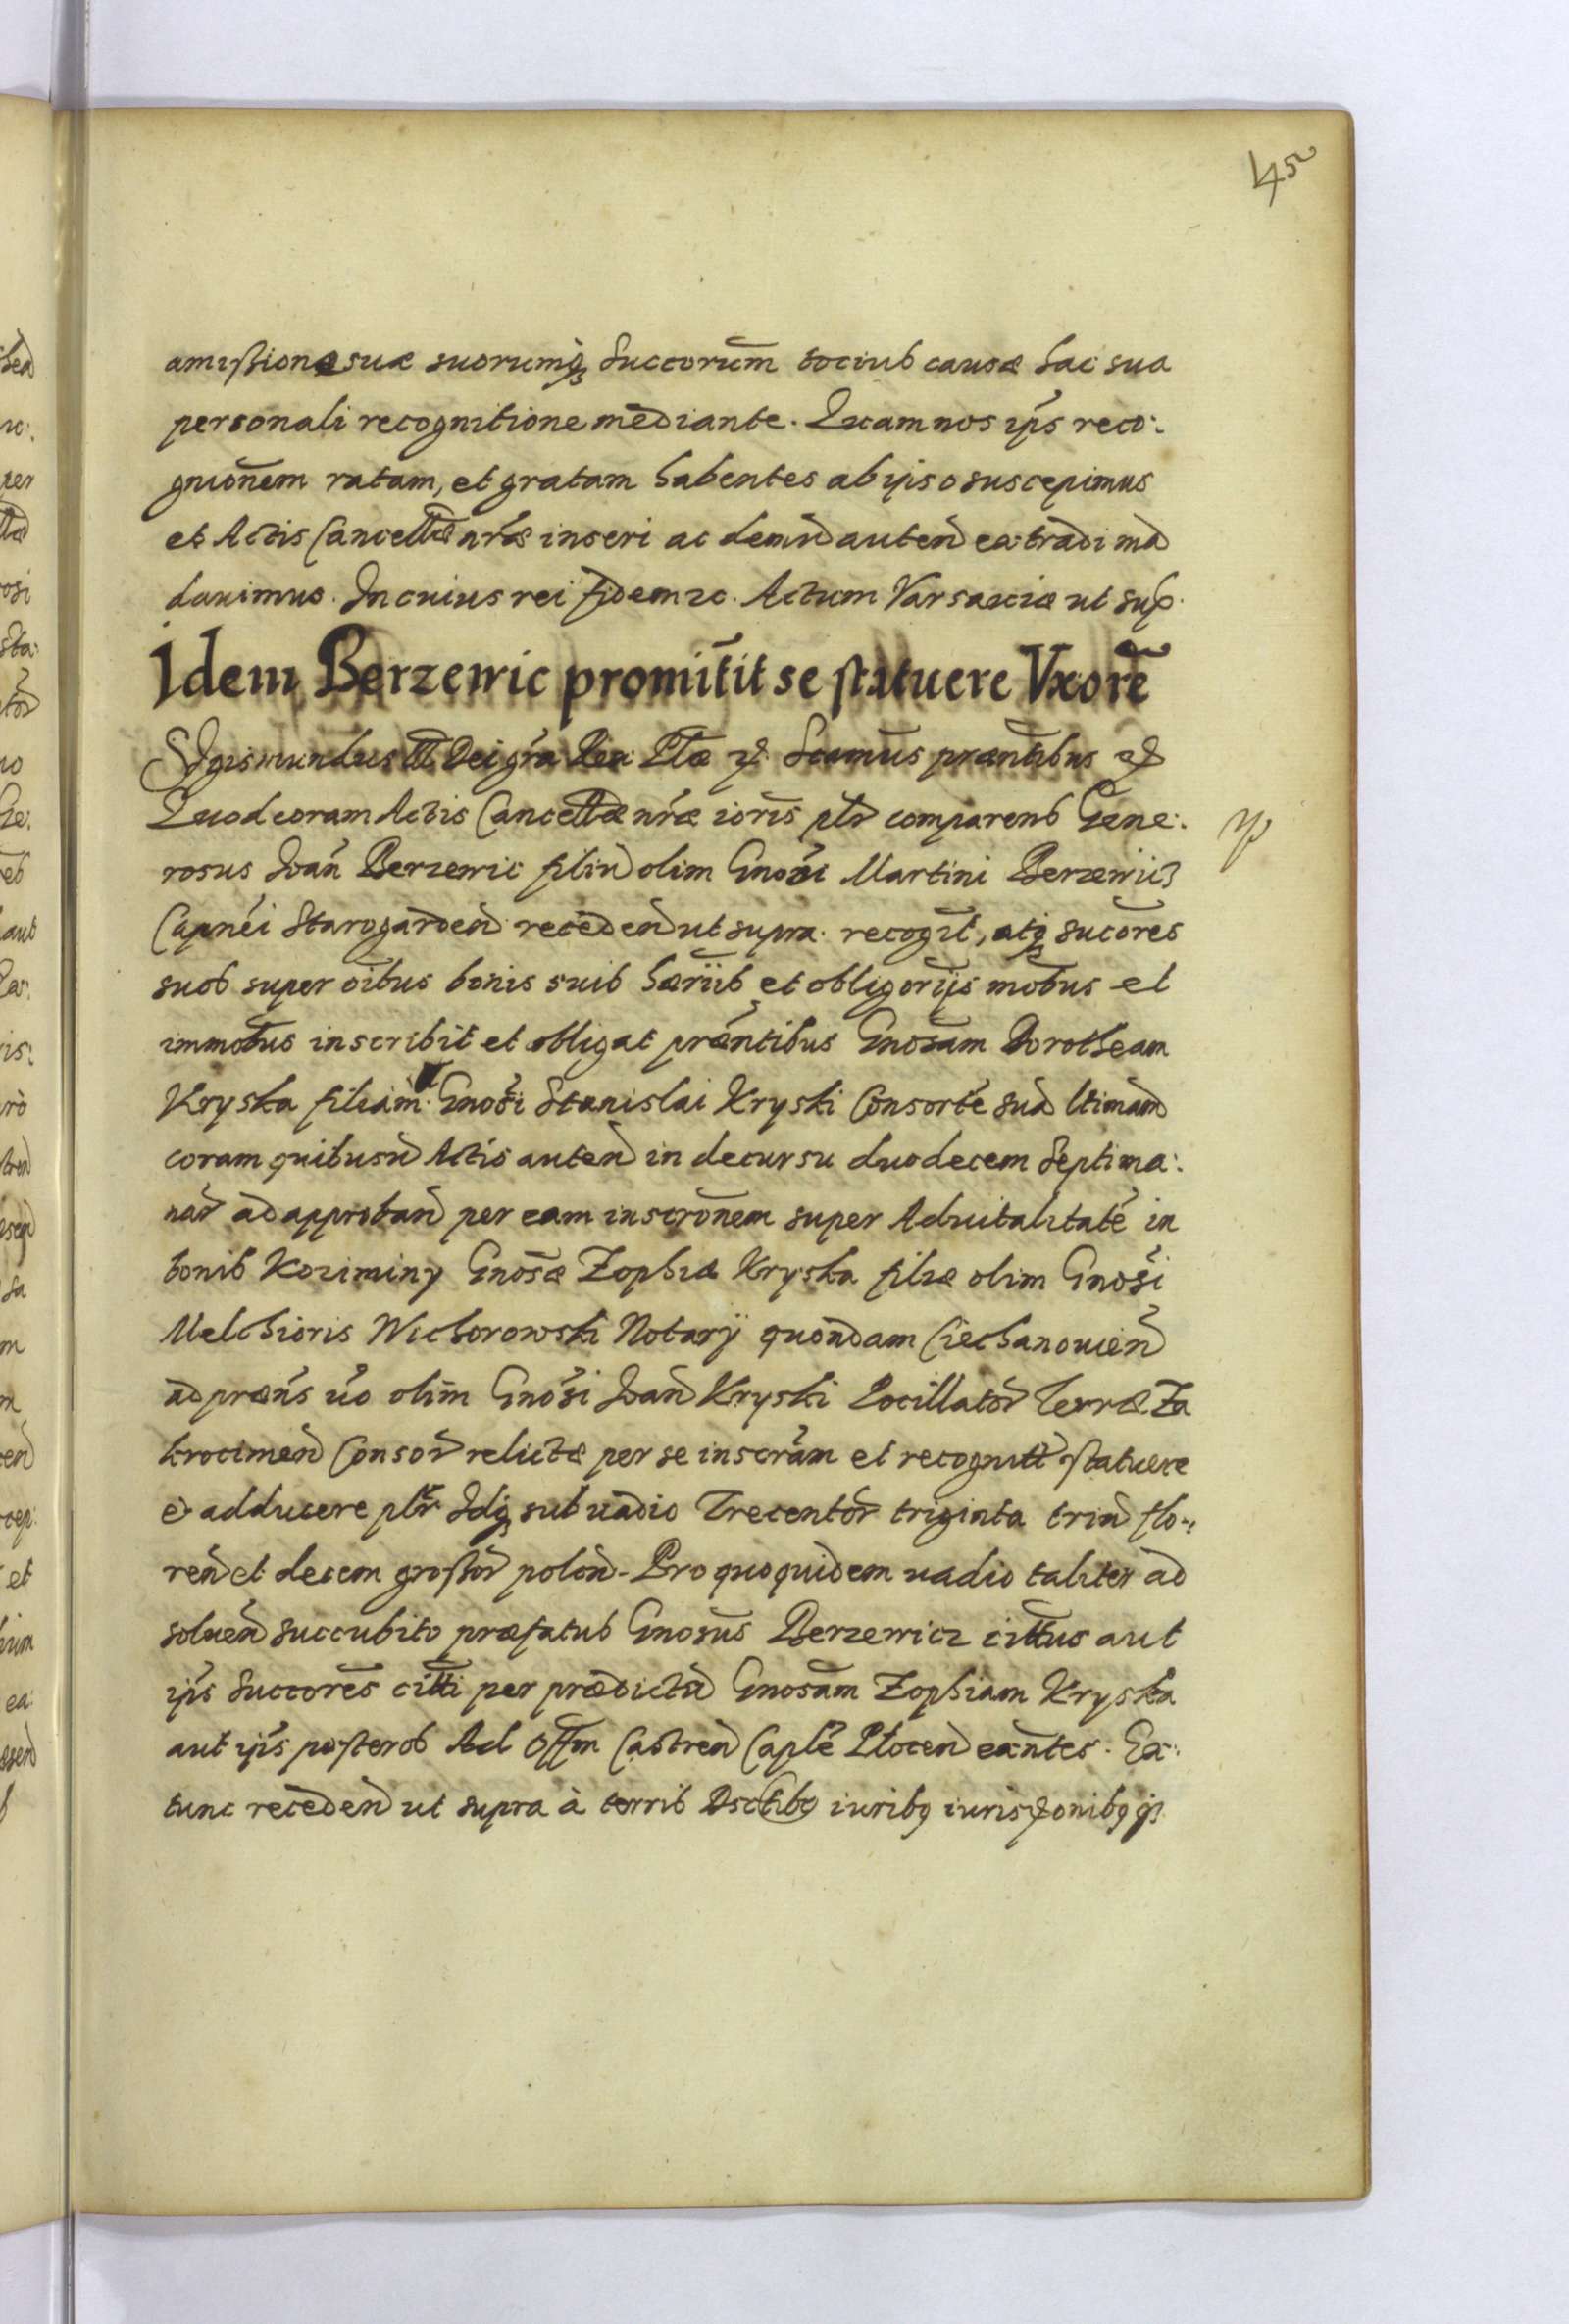 45
amissione suæ suorumq₃ Succorūm tocius causæ hac sua
personali recognitione mediante. Quam nos ip̄s reco:
gnionēm ratam, et gratam habentes ab ipso suscepimus
et Actis Cancellæ nr̄æ inseri ac demū auten extradi mā
dauimus. In cuius rei fidem ꝛc. Actum Varsauiæ ut sup.
Idem Berzewic promittit se statuere Vxorē
Sigismundus III Dei gr̄a Rex Plæ ꝛc. Scamūs præntibus
Quod coram Actis Cancellæ nr̄æ ioris plr comparens Gene:
rosus Joan̄ Berzewic filiū olim Gnosi Martini Berzewicz
Capnēi Starogarden recēden ut supra. recogīt, atq₃ sucōres
suos super oībus bonis suis hæriis et obligoriis mobūs et
immobūs inscribit et obligat præntibus Gnosām Dorotheam
Kryska filiam Gnosi Stanislai Kryski Consortē suā ltimam
coram quibusū Actis auten in decursu duodecem Septima:
nar ad approban per eam inscrōnem super Aduitalitatē in
bonis Koziminy Gnosæ Zophiæ Kryska filiæ olim Gnosi
Melchioris Wichorowski Notarÿ quondam Ciechanouien
ad præns uō olim Gnosi Joan Kryski Pocillator Terræ Za
krocimen Consor relictæ per se inscrām et recognitt statuere
et adducere plr Idq₃ sub uadio Trecentor triginta triū flo:
ren et decem grossor polon. Pro quo quidem uadio taliter ad
soluen succubito præfatus Gnosūs Berzewicz cittūs aut
ip̄s Succorēs citti per prædictā Gnosām Zophiam Kryska
aut ip̄s posteros Ad Offm Castren Caplē Plocen exāntes. Ex:
tunc recēden ut supra à terris Dsctibq iuribq iurisdonibq q₃